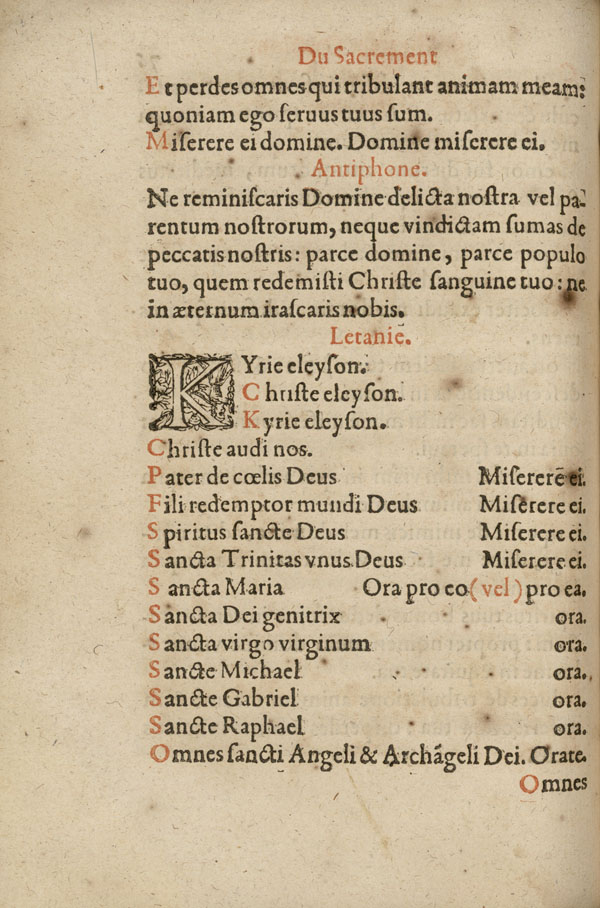 Du Sacrement
Et perdes omnes qui tribulant animam meam:
quoniam ego ſeruus tuus ſum.
Miſerere ei domine. Domine miſerere ei.
Antiphone.
Ne reminiſcaris Domine delicta noſtra vel pa-
rentum noſtrorum, neque vindictam ſumas de
peccatis noſtris: parce domine, parce populo
tuo, quem redemiſti Chriſte ſanguine tuo: ne
in æternum iraſcaris nobis.
Letanie.
KYrie eleyſon.
Chriſte eleyſon.
Kyrie eleyſon.
Chriſte audi nos.
Pater de cœlis Deus Miſerere ei.
Fili redemptor mundi Deus Miſerere ei.
Spiritus ſancte Deus Miſerere ei.
Sancta Trinitas vnus Deus Miſerere ei.
Sancta Maria Ora pro eo (vel) pro ea.
Sancta Dei genitrix ora.
Sancta virgo virginum ora.
Sancte Michael ora.
Sancte Gabriel ora.
Sancte Raphael ora.
Omnes ſancti Angeli & Archãgeli Dei. Orate.
Omnes